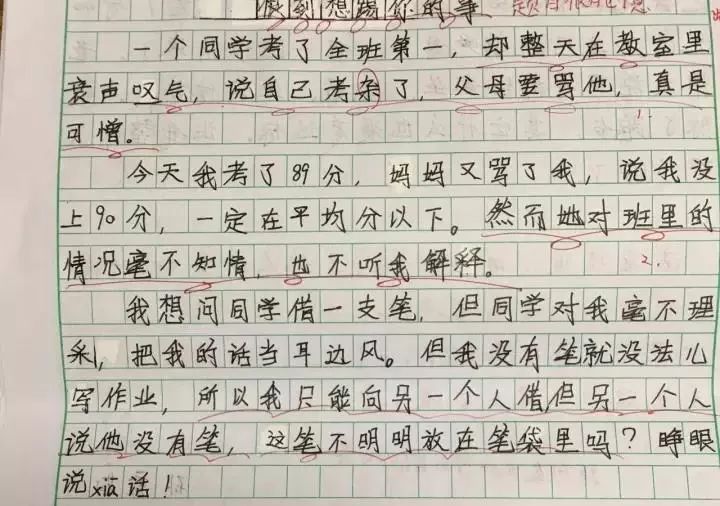 假刻想踢你的事
一个同学考了全班第一，却整天在教室里
哀声叹气，说自己考杂了，父母要骂他，真是
可憎。
今天我考了89分，妈妈又骂了我，说我没
上90分，一定在平均分以下。然而她对班里的
情况毫不知情，也不听我解释。
我想问同学借一支笔，但同学对我毫不理
采，把我的话当耳边风。但我没有笔就没法儿
写作业，所以我只能向另一个人借，但另一个人
说他没有笔，这笔不明明放在笔袋里吗？睁眼
说xiā话！
1.
2.